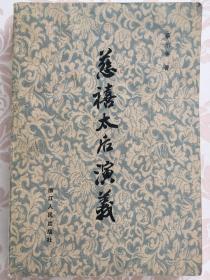 蔡东藩 著
慈禧太后演義
浙江人民出版社